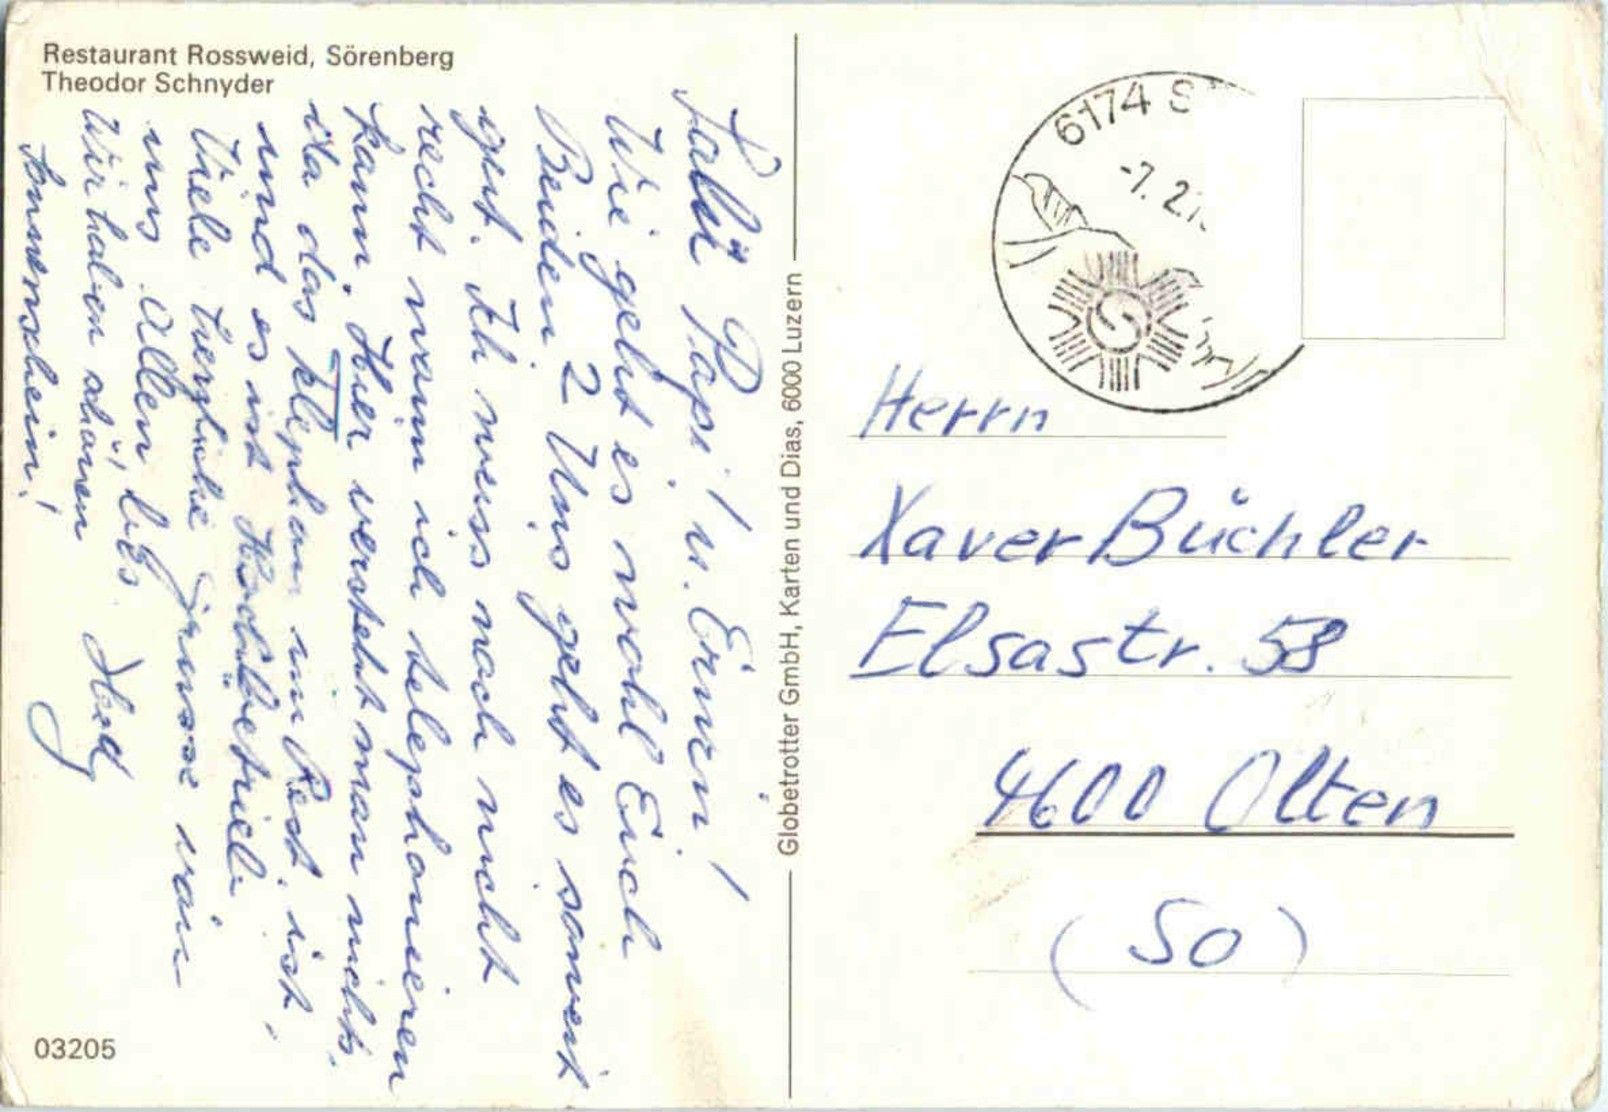 Restaurant Rossweid, Sörenberg
Theodor Schnyder
Salü Papi! u. Erwin!
Wie geht es wohl Euch
Beiden 2 Uns geht es soweit
gut. Ich weiss noch nicht
recht wann ich telephonieren
kann. Hier versteht man nichts,
da das Telephon im Rest. ist,
und es ist Hochbetrieb.
Viele herzliche Grüsse von
uns Allen, bes. Hedy
Wir haben schönen
Sonnenschein!
03205
Globetrotter GmbH, Karten und Dias, 6000 Luzern
6174 S
-7. 2.
Herrn
Xaver Büchler
Elsastr. 58
4600 Olten
(SO)